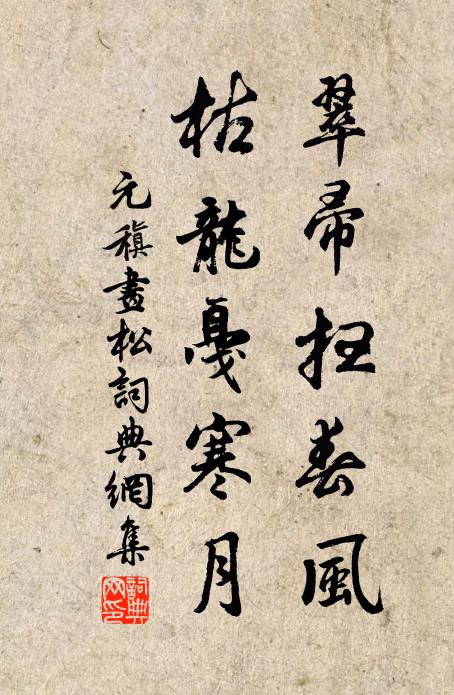 翠帚扫春風
枯龍戛寒月
元稹畫松詞典網集
詞典網印